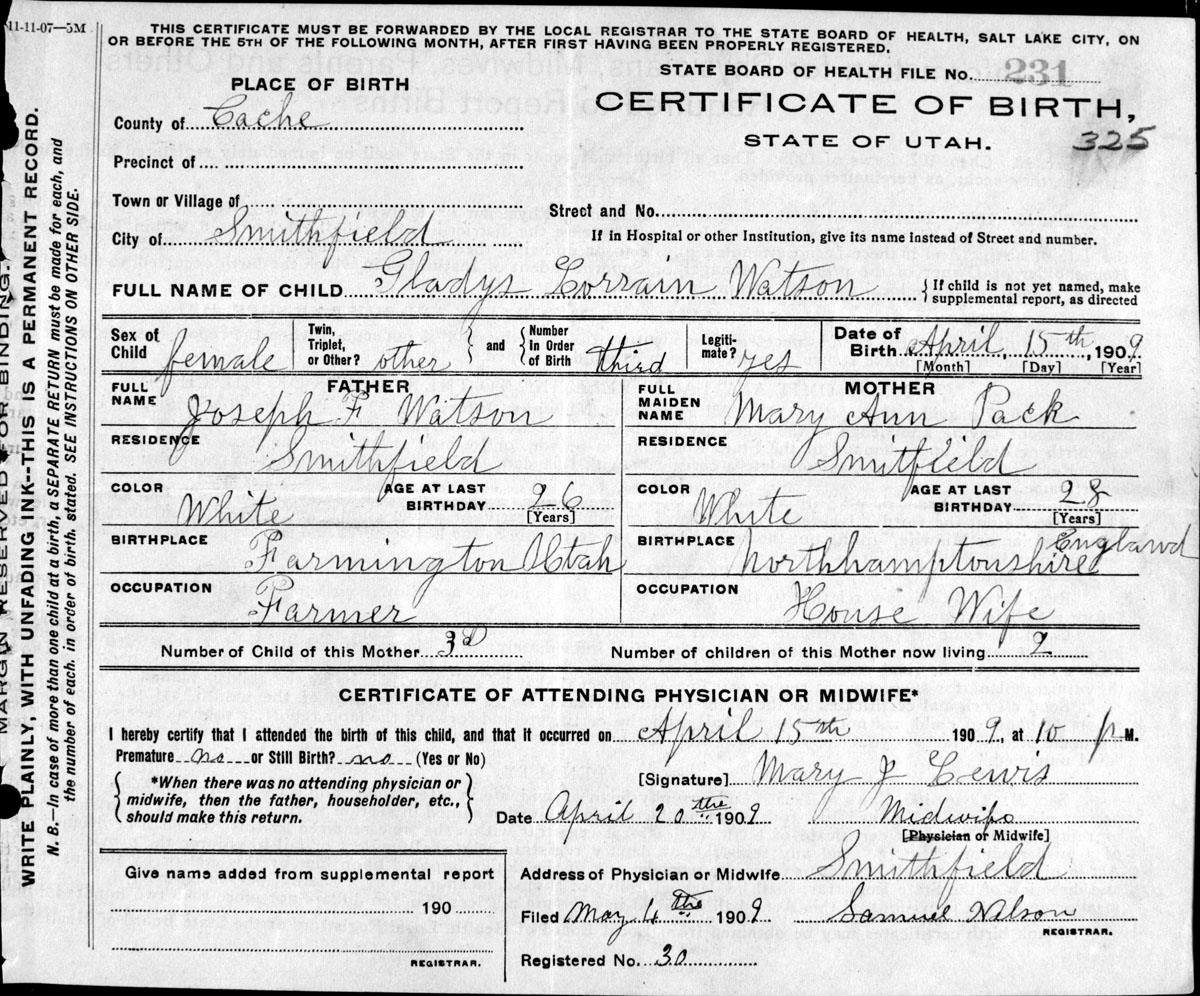 11-11-07—5M
THIS CERTIFICATE MUST BE FORWARDED BY THE LOCAL REGISTRAR TO THE STATE BOARD OF HEALTH, SALT LAKE CITY, ON
OR BEFORE THE 5TH OF THE FOLLOWING MONTH, AFTER FIRST HAVING BEEN PROPERLY REGISTERED.
STATE BOARD OF HEALTH FILE No. 231
PLACE OF BIRTH
CERTIFICATE OF BIRTH,
County of Cache
STATE OF UTAH. 325
Precinct of
Town or Village of
Street and No.
City of Smithfield
If in Hospital or other Institution, give its name instead of Street and number.
FULL NAME OF CHILD Gladys Lorrain Watson { If child is not yet named, make
supplemental report, as directed
Sex of Child female Twin, Triplet, or Other? other } and { Number In Order of Birth third Legiti-mate? yes Date of Birth April, 15th, 1909
[Month] [Day] [Year]
FATHER
FULL NAME Joseph F Watson
RESIDENCE Smithfield
COLOR White AGE AT LAST BIRTHDAY 26 [Years]
BIRTHPLACE Farmington Utah
OCCUPATION Farmer
MOTHER
FULL MAIDEN NAME Mary Ann Pack
RESIDENCE Smitfield
COLOR White AGE AT LAST BIRTHDAY 28 [Years]
BIRTHPLACE Northhamptonshire England
OCCUPATION House Wife
Number of Child of this Mother 3d Number of children of this Mother now living 2
CERTIFICATE OF ATTENDING PHYSICIAN OR MIDWIFE*
I hereby certify that I attended the birth of this child, and that it occurred on April 15th 1909, at 10 p M.
Premature no or Still Birth? no (Yes or No)
{ *When there was no attending physician or
midwife, then the father, householder, etc.,
should make this return. }
[Signature] Mary J Lewis
Date April 20the 1909 Midwife
[Physician or Midwife]
Give name added from supplemental report
190
REGISTRAR.
Address of Physician or Midwife Smithfield
Filed May 4the 1909 Samuel Nelson
REGISTRAR.
Registered No. 30
MARGIN RESERVED FOR BINDING.
WRITE PLAINLY, WITH UNFADING INK--THIS IS A PERMANENT RECORD.
N. B.—In case of more than one child at a birth, a SEPARATE RETURN must be made for each, and
the number of each, in order of birth, stated. SEE INSTRUCTIONS ON OTHER SIDE.